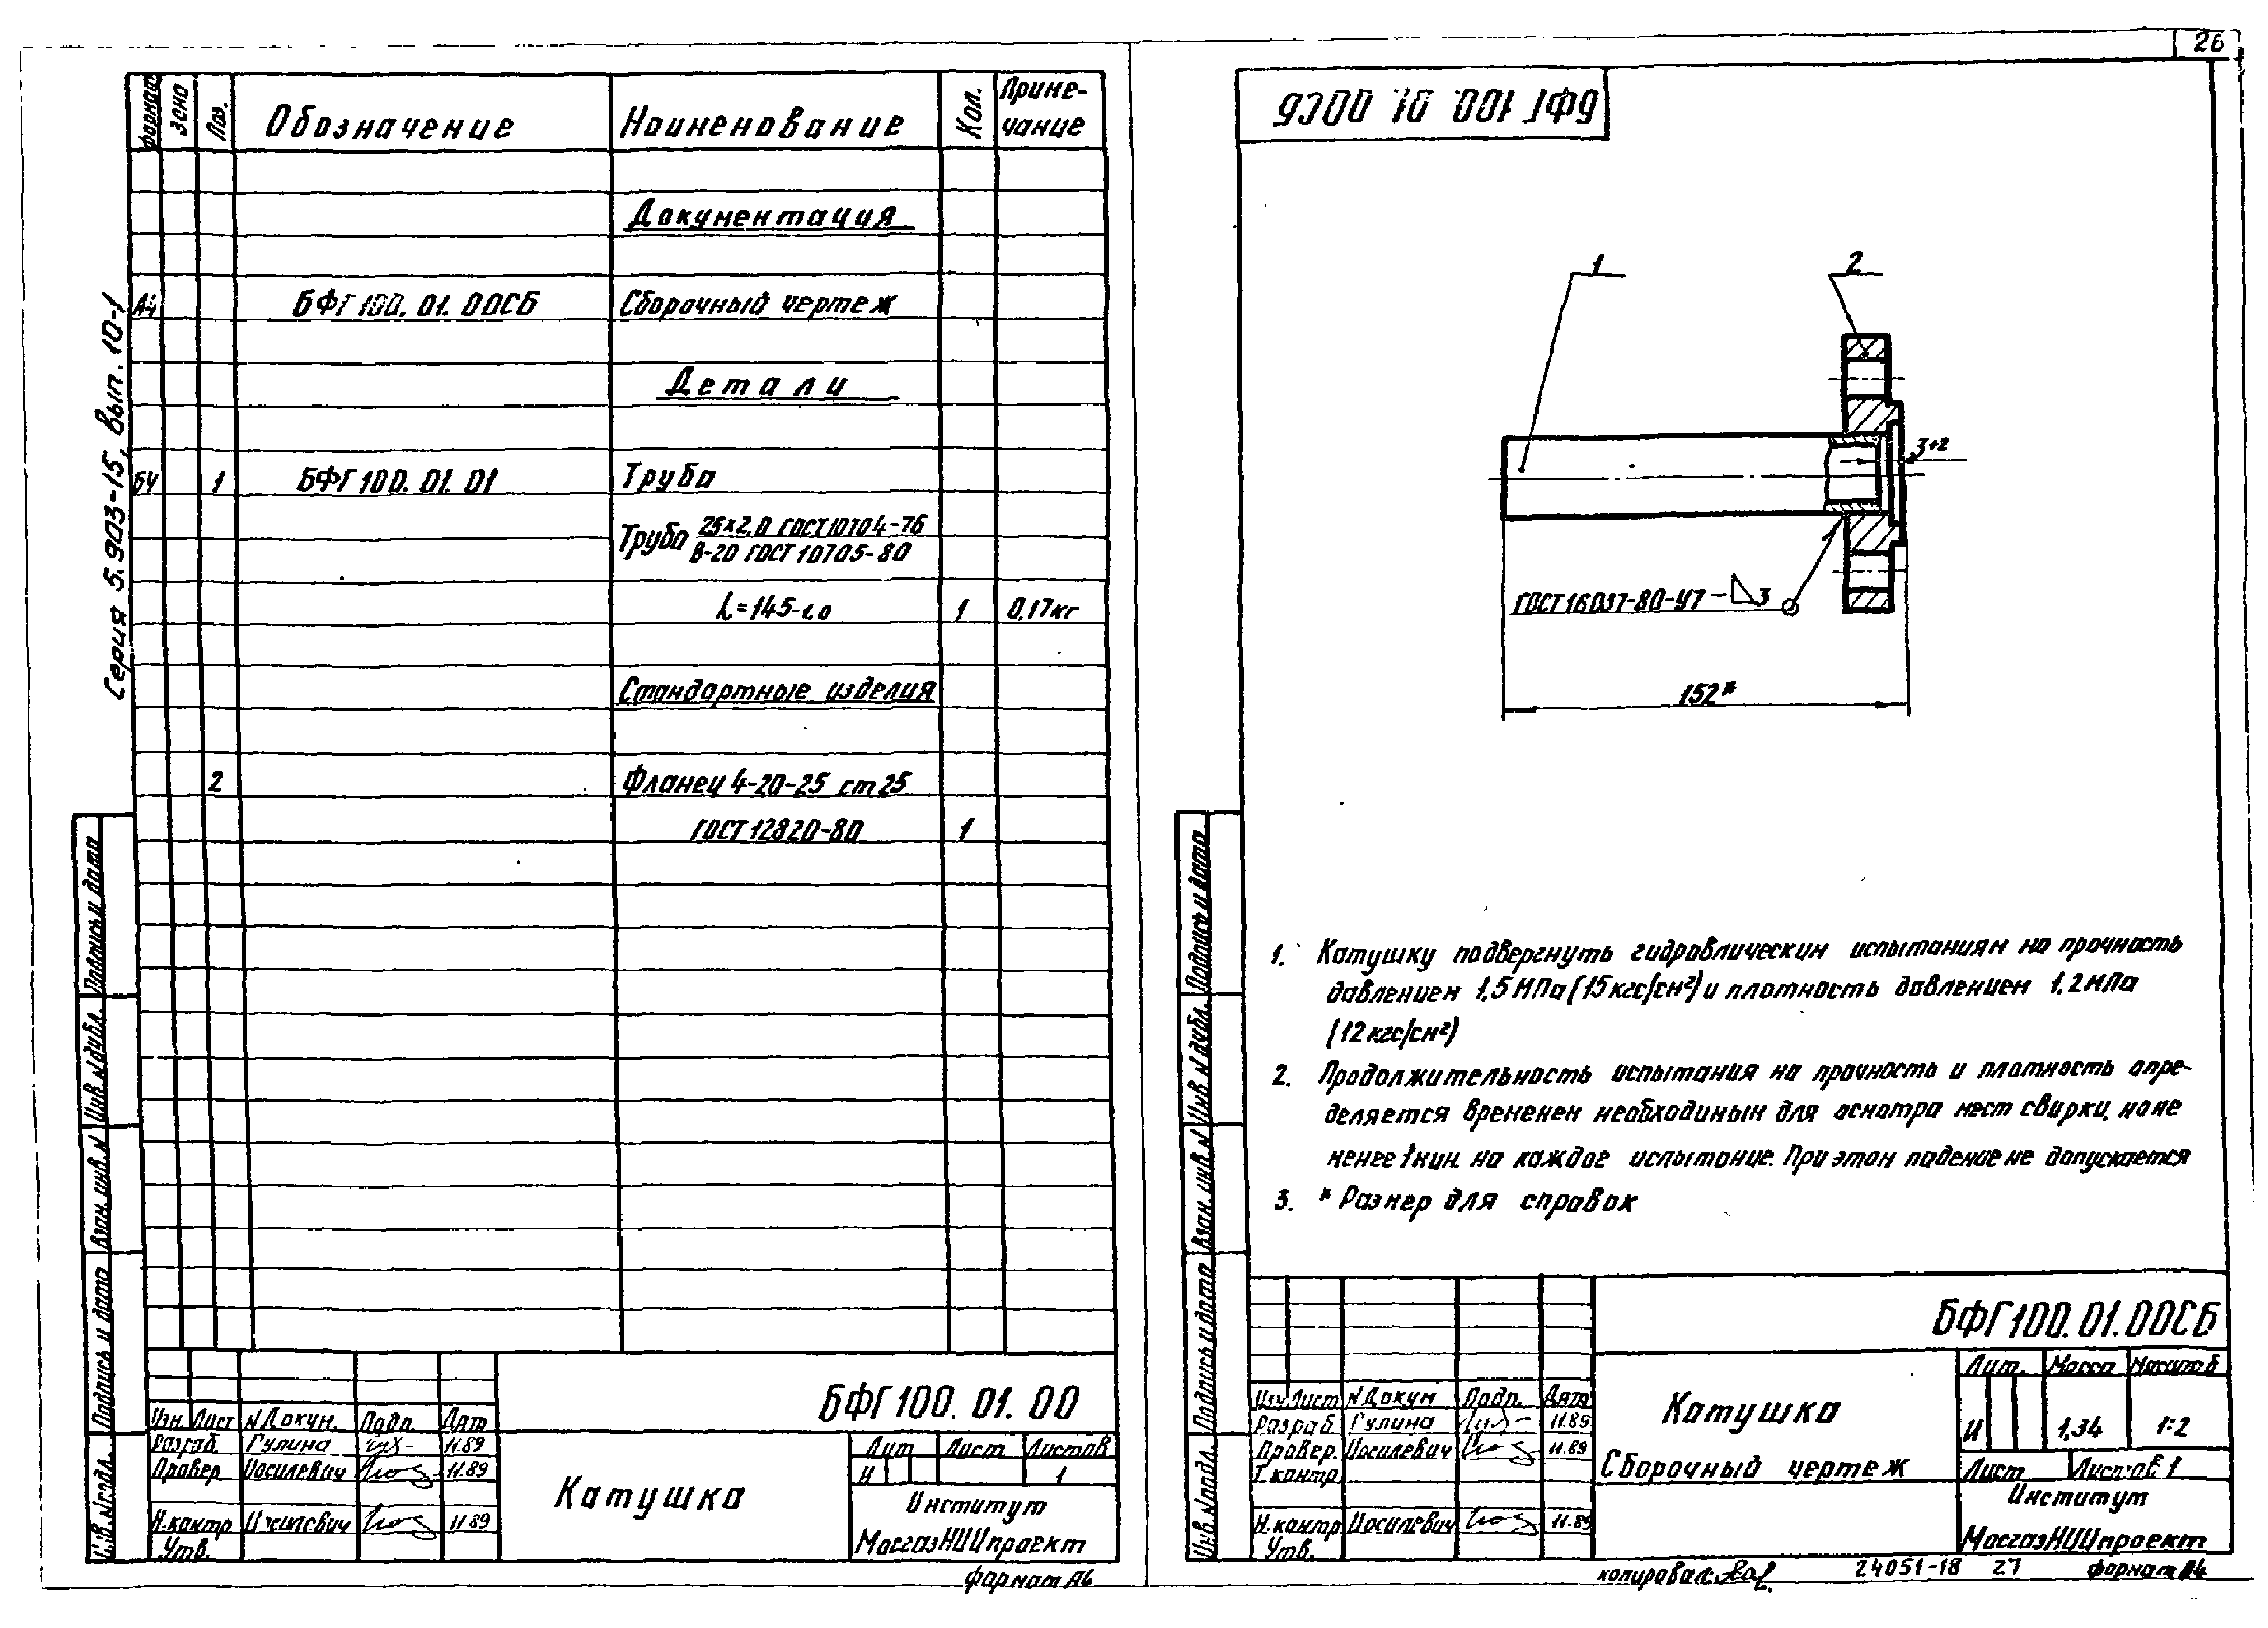 26
Серия 5.903-15, вып. 10-1
Формат Зона Поз. Обозначение Наименование Кол. Приме-
чание
Документация
А4 БФГ 100. 01. 00СБ Сборочный чертеж
Детали
БЧ 1 БФГ 100. 01. 01 Труба
Труба 25×2,0 ГОСТ 10704-76
В-20 ГОСТ 10705-80
L=145-1,0 1 0,17кг
Стандартные изделия
2 Фланец 4-20-25 ст 25
ГОСТ 12820-80 1
Подпись и дата
Инв. N дубл.
Взам. инв. N
Подпись и дата
Инв. N подл.
БФГ 100. 01. 00
Изм. Лист N Докум. Подп. Дата
Разраб. Гулина 11.89
Провер. Иосилевич 11.89
Н.контр Иосилевич 11.89
Утв.
Катушка
Лит Лист Листов
И 1
Институт
МосгазНИИпроект
формат А4
БФГ 100. 01. 00СБ
1
2
3+2
ГОСТ 16037-80-У7-◺3
152*
1. Катушку подвергнуть гидравлическим испытаниям на прочность
давлением 1,5 МПа (15 кгс/см²) и плотность давлением 1,2 МПа
(12 кгс/см²)
2. Продолжительность испытания на прочность и плотность опре-
деляется временем необходимым для осмотра мест сварки, но не
менее 1 мин. на каждое испытание. При этом падение не допускается
3. * Размер для справок
Подпись и дата
Инв. N дубл.
Взам. инв. N
Подпись и дата
Инв. N подл.
БФГ 100. 01. 00СБ
Изм. Лист N Докум Подп. Дата
Разраб Гулина 11.89
Провер. Иосилевич 11.89
Т.контр.
Н.контр Иосилевич 11.89
Утв.
Катушка
Сборочный чертеж
Лит. Масса Масштаб
И 1,34 1:2
Лист Листов 1
Институт
МосгазНИИпроект
копировал: 24051-18 27 формат А4